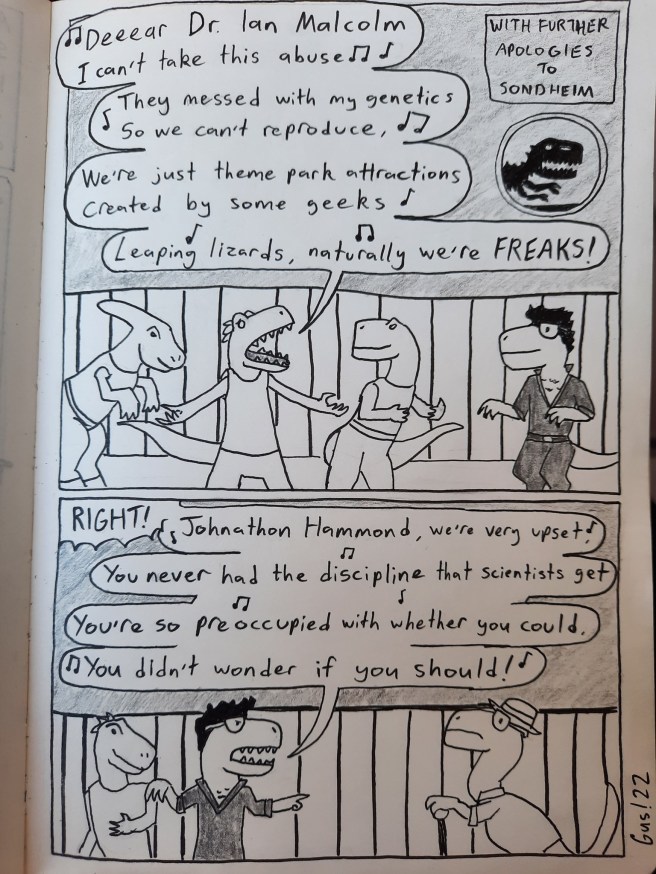 Deeear Dr. Ian Malcolm
I can't take this abuse
They messed with my genetics
So we can't reproduce,
We're just theme park attractions
Created by some geeks
Leaping lizards, naturally we're FREAKS!
WITH FURTHER
APOLOGIES
TO
SONDHEIM
RIGHT!
Johnathon Hammond, we're very upset!
You never had the discipline that scientists get
You're so preoccupied with whether you could.
You didn't wonder if you should!
Gus! 22